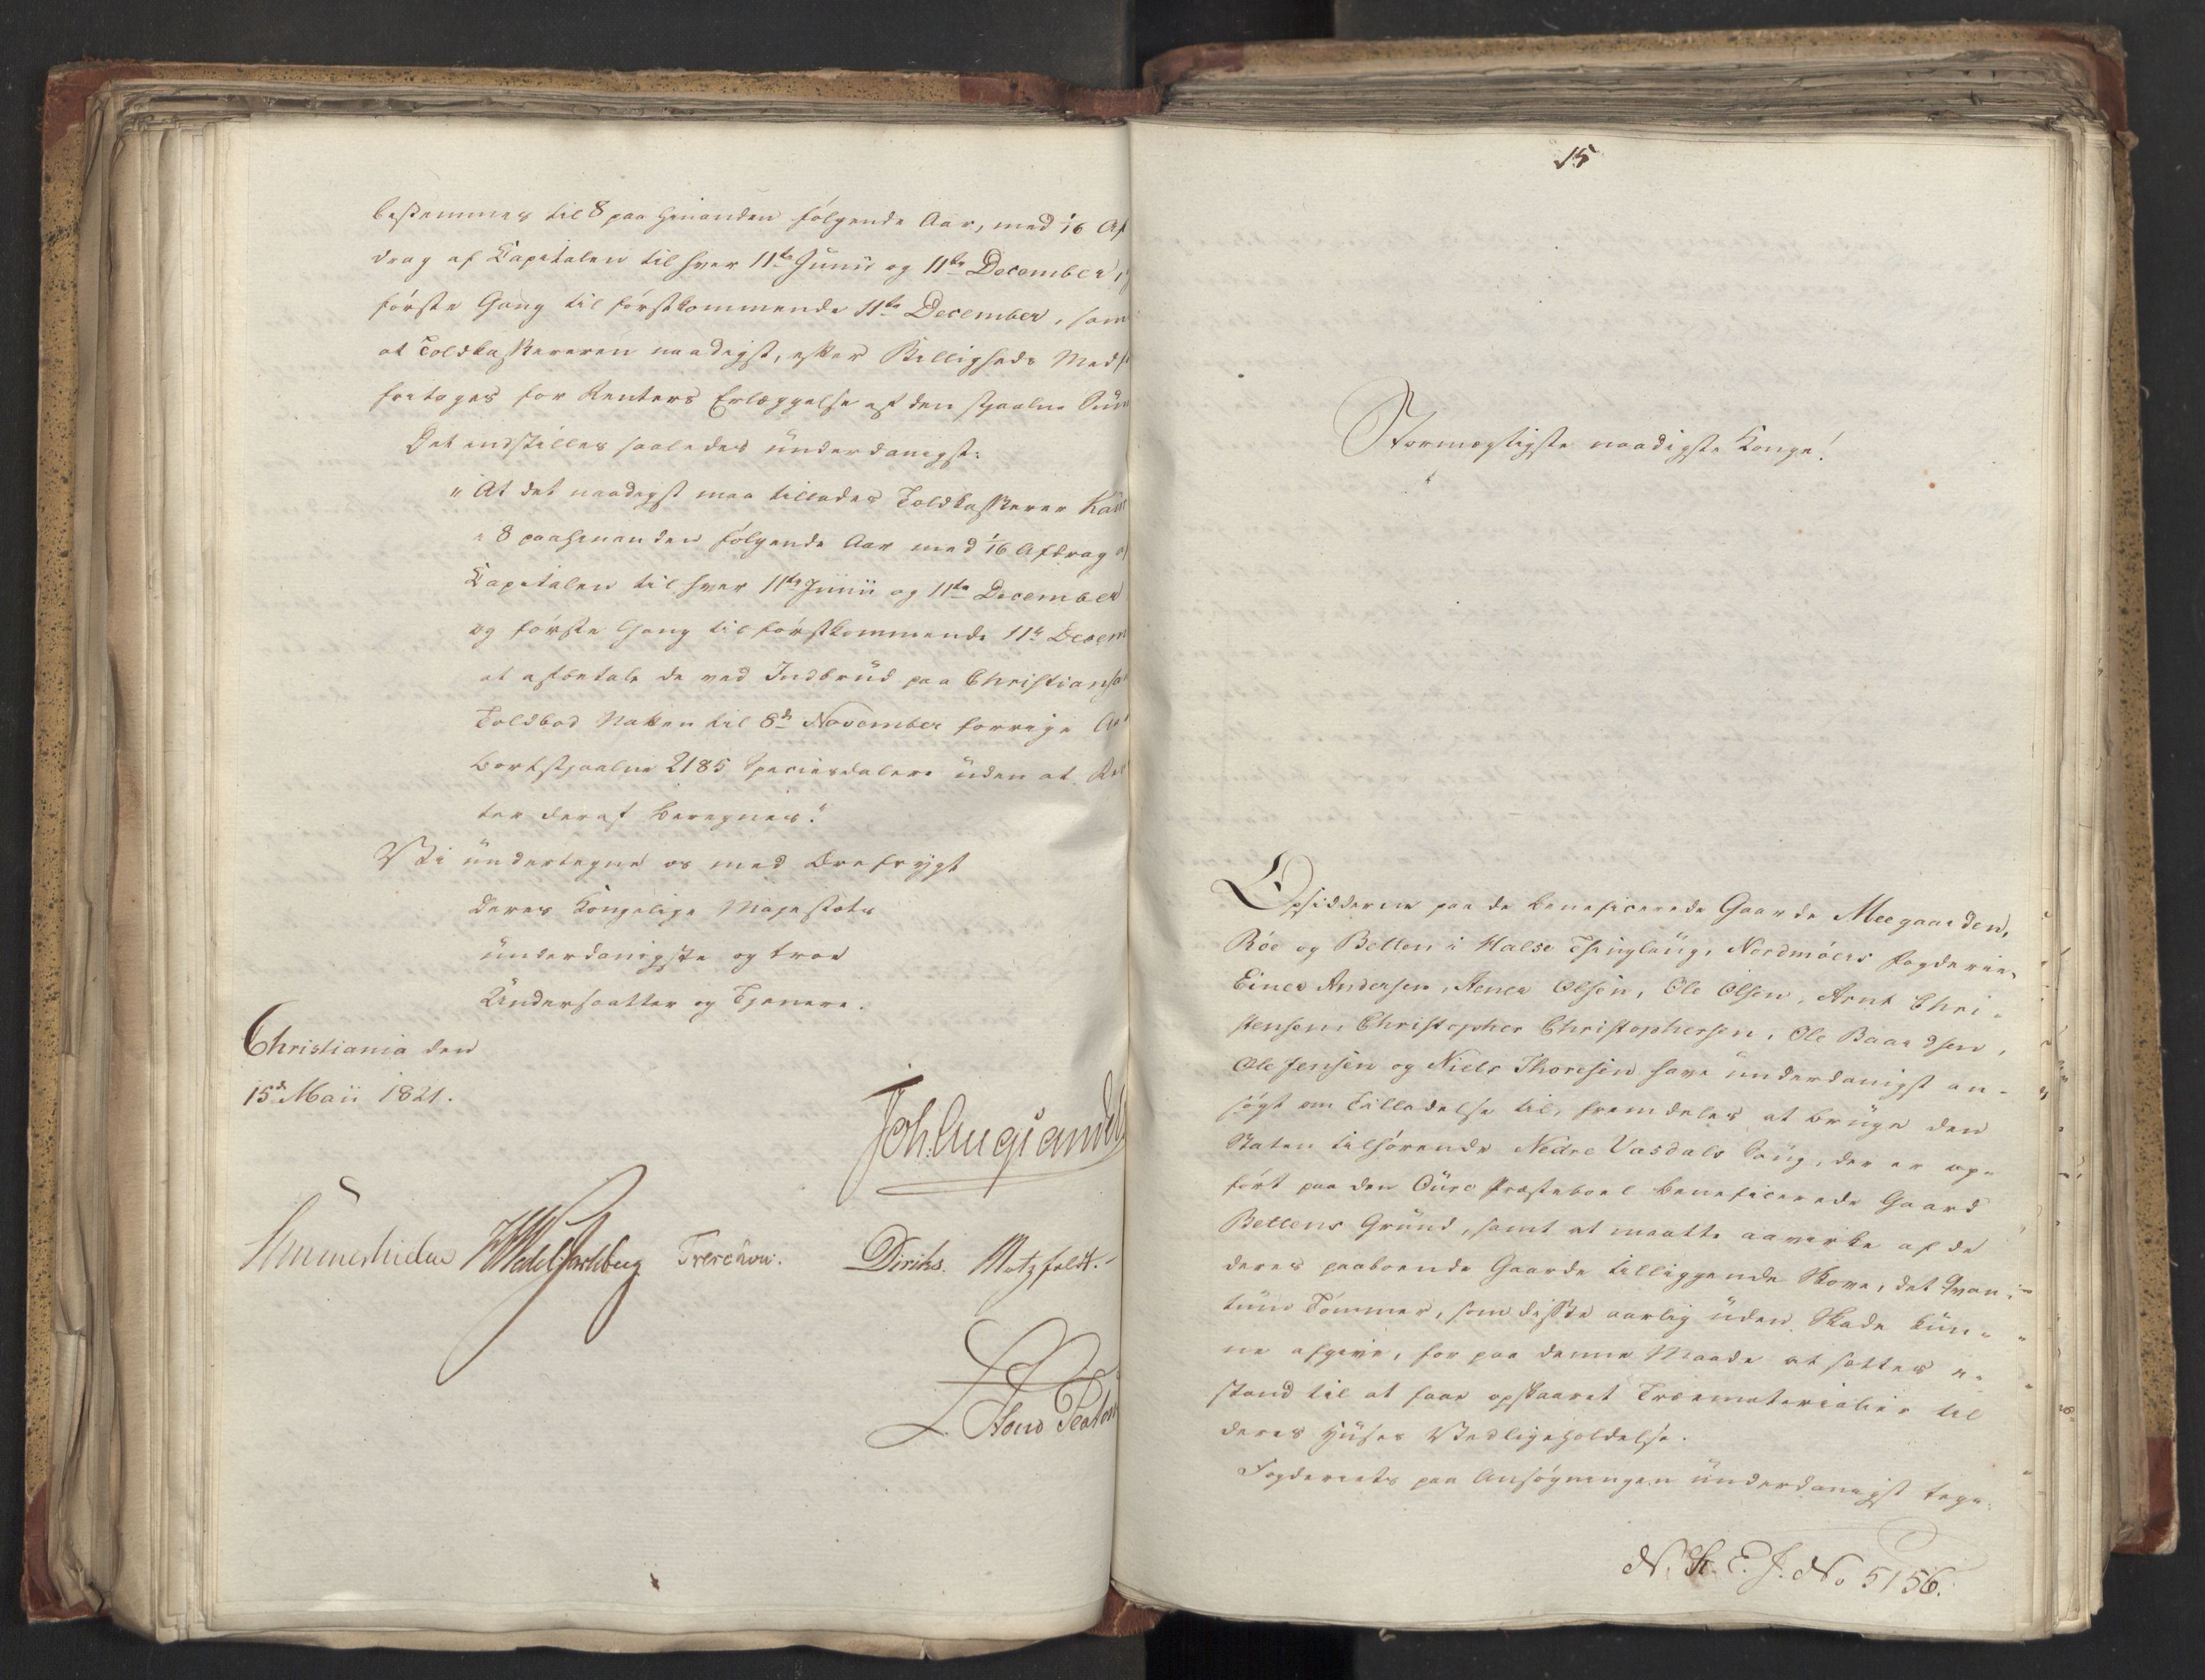 bestemmes til 8 paa hinanden følgende Aar, med 1/16 Af
drag af Capitalen til hver 11te Junii og 11te December,
første Gang til førstkommende 11te December, sam
at Toldkasereren naadigst, efter Billigheds Medf
fritages for Renters Erlæggelse af den stjaalne Sum
Det indstilles saaledes underdanigst:
"At det naadigst maa tillades Toldkasserer
i 8 paahinanden følgende Aar med 1/16 Afdrag af
Capitalen til hver 11te Junii og 11te December
og første Gang til førstkommende 11te Decem
at afbetale de ved Indbrud paa Christians
Toldbod Natten til 8de November forrige Aar
bortstjaalne 2185 Speciesdalere uden at Ren
ter deraf beregnes."
Vi undertegne os med Ærefrygt
Deres Kongelige Majestæts
underdanigste og troe
Undersaatter og Tjenere.
Christiania den
15de Maii 1821.
Joh: Aug: Sandels
Sommerhielm HWedelJarlsberg Treschow. Diriks. Motzfeldt.
L.
15
Stormægtigste naadigste Konge!
Opsidderne paa de beneficerede Gaarde Meegaarden,
Röe og Betten i Halse Thinglaug, Nordmöers Fogderie,
Einer Andersen, Iener Olsen, Ole Olsen, Arnt Chri-
stensen, Christopher Christophersen, Ole Baardsen,
Ole Jensen og Niels Thoresen have underdanigst an-
søgt om Tilladelse til, fremdeles at bruge den
Staten tilhørende Nedre Vasdals Saug, der er op-
ført paa den Öure Præsteboel beneficerede Gaard
Bettens Grund, samt at maatte aavirke af de
deres paaboende Gaarde tilliggende Skove, det Qvan-
tum Tømmer, som disse aarlig uden Skade kun-
ne afgive, for paa denne Maade at sættes i-
stand til at faae opskaaret Træematerialier til
deres Huses Vedligeholdelse.
Fogderiets paa Ansøgningen underdanigst tegn-
N. St. E. J. No 5156.